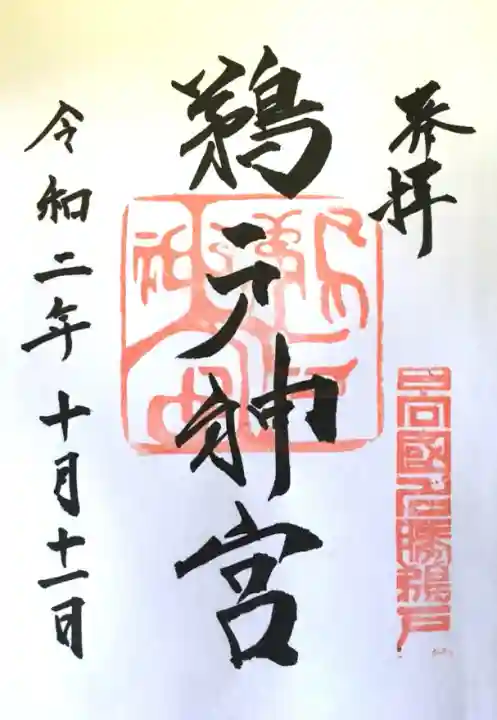 奉拝
日向國名勝鵜戸
鵜戸神宮
令和二年十月十一日